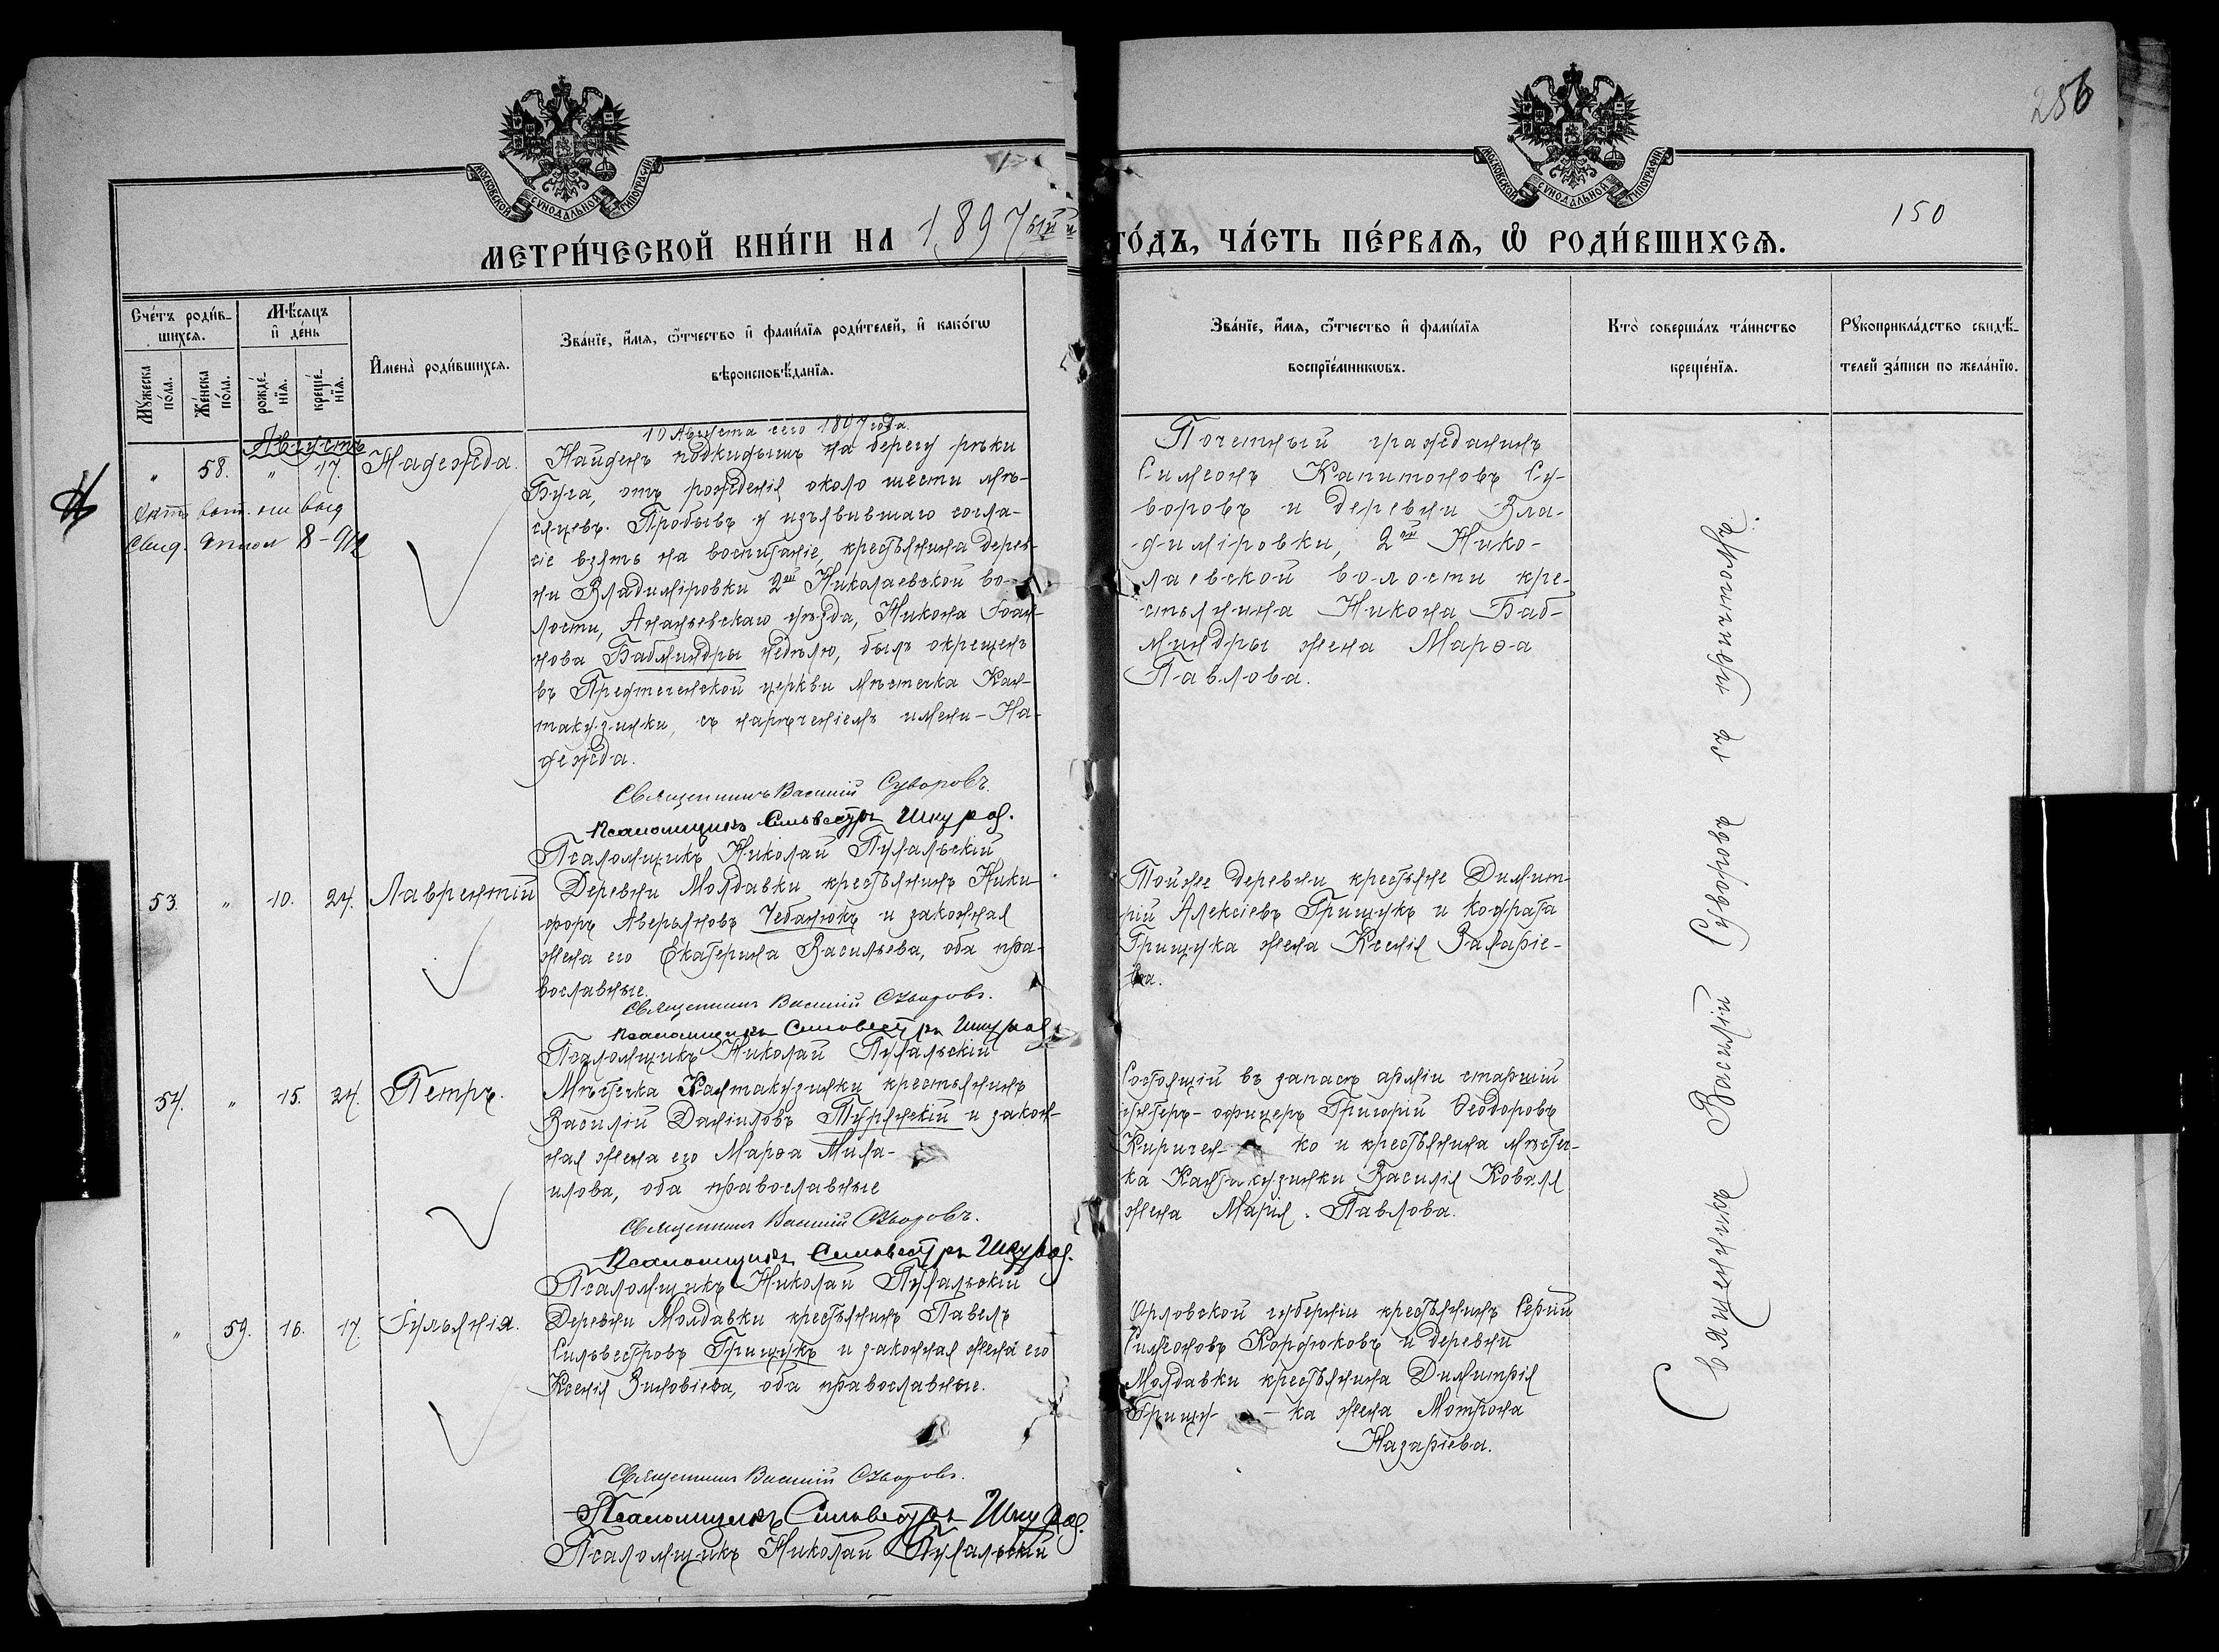 256
150
МОСКОВСКОЙ СѴНОДАЛЬНОЙ ТИПОГРАФІИ
МОСКОВСКОЙ СѴНОДАЛЬНОЙ ТИПОГРАФІИ
МЕТРИ́ЧЕСКОЙ КНИ́ГИ НА 1897ый
ГО́ДЪ, ЧА́СТЬ ПЕ́РВАЯ, Ѡ РОДИ́ВШИХСЯ.
Сче́тъ роди́в-
шихся.
Мꙋ́жеска по́ла.
Же́нска по́ла.
Мѣ́сяцъ и де́нь
рожде́-нїя.
креще́-нїя.
Имена̀ роди́вшихся.
Зва́нїе, и́мя, ѻ́тчество и фами́лїя роди́телей, и како́гѡ
вѣроисповѣ́данїя.
Зва́нїе, и́мя, ѻ́тчество и фами́лїя
воспрїе́мникѡвъ.
Кто̀ соверша́лъ та́инство
креще́нїя.
Рꙋкоприкла́дство свидѣ́-
телей за́писи по жела́нїю.
Августъ
" 58. " 17. Надежда.
10 Августа сего 1897 года.
Найденъ подкидышъ на берегу рѣки
Буга, отъ рожденія около шести мѣ-
сяцевъ. Пробывъ у изъявившаго согла-
сіе взять на воспитаніе, крестьянина дерев-
ни Владиміровки 2ой Николаевской во-
лости, Ананьевскаго уѣзда, Никона Іоан-
нова Бабминдры недѣлю, былъ окрещенъ
въ Предтеченской церкви мѣстечка Кан-
такузинки, съ нареченіемъ имени - На-
дежда.
Священникъ Василій Суворовъ.
Псаломщикъ Сильвестръ
Псаломщикъ Николай
Почетный гражданинъ
Симеонъ Капитоновъ Су-
воровъ и деревни Вла-
диміровки, 2ой Нико-
лаевской волости кре-
стьянина Никона Баб-
миндры жена Марѳа
Павлова.
53. " 10. 24. Лаврентій
Деревни Молдавки крестьянинъ Ники-
форъ Аверьяновъ Чебанюкъ и законная
жена его Екатерина Васильева, оба пра-
вославные.
Священникъ Василій Суворовъ.
Псаломщикъ Сильвестръ
Псаломщикъ Николай
Тойже деревни крестьяне Димит-
рій Алексіевъ Грищукъ и Кодрата
Грищука жена Ксенія
54. " 15. 24. Петръ.
Мѣстечка Кантакузинки крестьянинъ
Василій Даніиловъ Турянскій и закон-
ная жена его Марѳа Миха-
илова, оба православные
Священникъ Василій Суворовъ.
Псаломщикъ Сильвестръ
Псаломщикъ Николай
Состоящій въ запасѣ арміи старшій
унтеръ-офицеръ Григорій Ѳеодоровъ
Киричен- ко и крестьянина мѣстеч-
ка Кантакузинки Василія Коваля
жена Марія Павлова.
" 59. 16. 17. Іуліанія.
Деревни Молдавки крестьянинъ Павелъ
Сильвестровъ Грищукъ и законная жена его
Ксенія Зиновіева, оба православные.
Священникъ Василій Суворовъ.
Псаломщикъ Сильвестръ
Псаломщикъ Николай
Орловской губерніи крестьянинъ Сергій
Симеоновъ Кордюковъ и деревни
Молдавки крестьянина Димитрія
Грищу- ка жена Мотрона
Назаріева.
Священникъ Василій Суворовъ съ причтомъ.